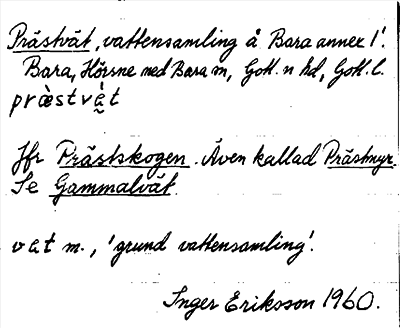 Prästvät, vattensamling å Bara annex 1!
Bara, Hörsne med Bara m, Gotl. n hd, Gotl. l.
præ̀stvḛ̀t
Jfr Prästskogen. Även kallad Prästmyr.
Se Gammalvät.
vat m., 'grund vattensamling'.
Inger Erikson 1960.